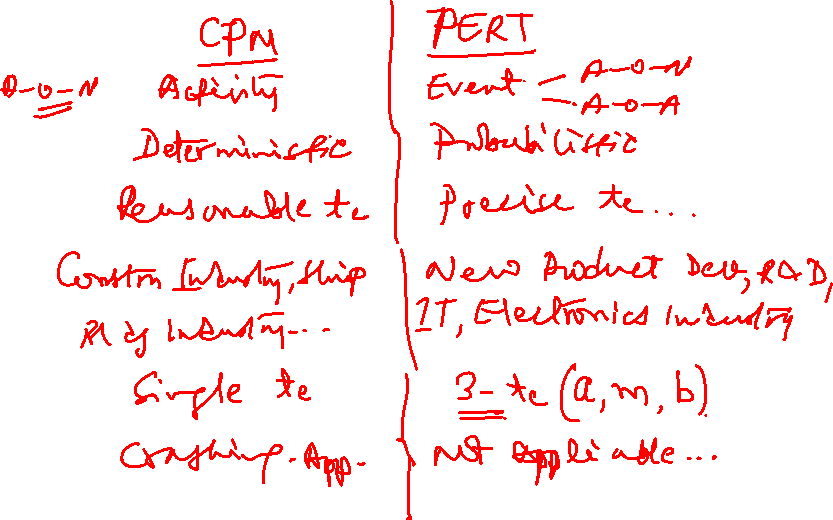 CPM PERT
A-O-N Activity Event A-O-N
A-O-A
Deterministic Probabilistic
Reasonable te Precise te...
Constrn Industry, Ship New Product Dev, R&D,
Bldg Industry... IT, Electronics industry
Single te 3- te (a, m, b)
Crashing. App. Not Appliable...